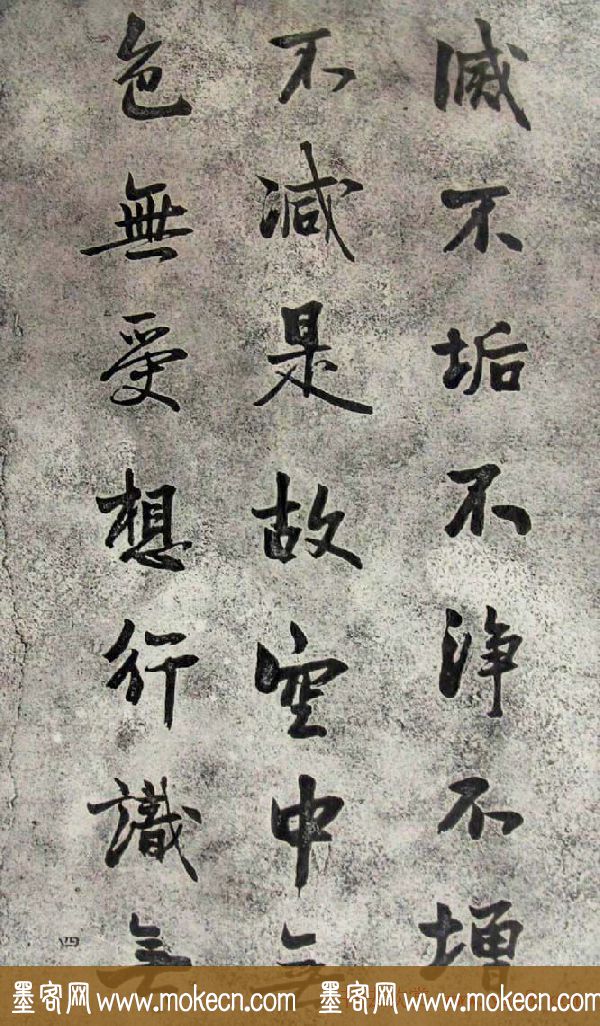 滅不垢不淨不增
不減是故空中無
色無受想行識無
四
墨客网 www.mokecn.com 墨客网 www.mokecn.com